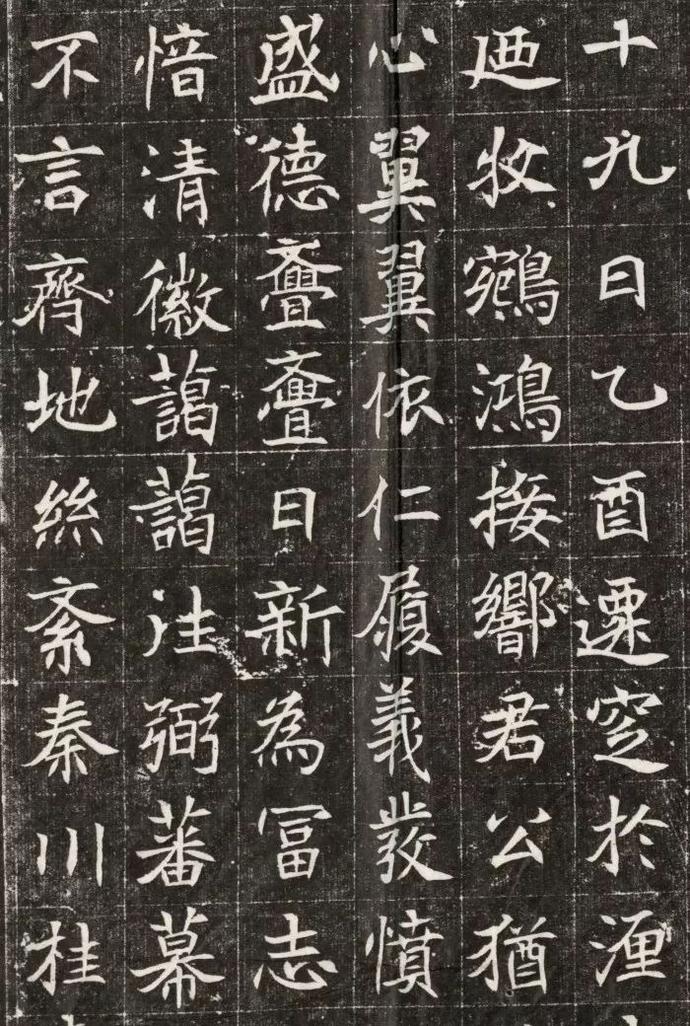 十九日乙酉遷窆於瀍
廼牧鵷鴻接響君公猶
心翼翼依仁履義發憤
盛德亹亹日新為冨志
愔清徽藹藹注弼蕃幕
不言齊地絲紊秦川桂